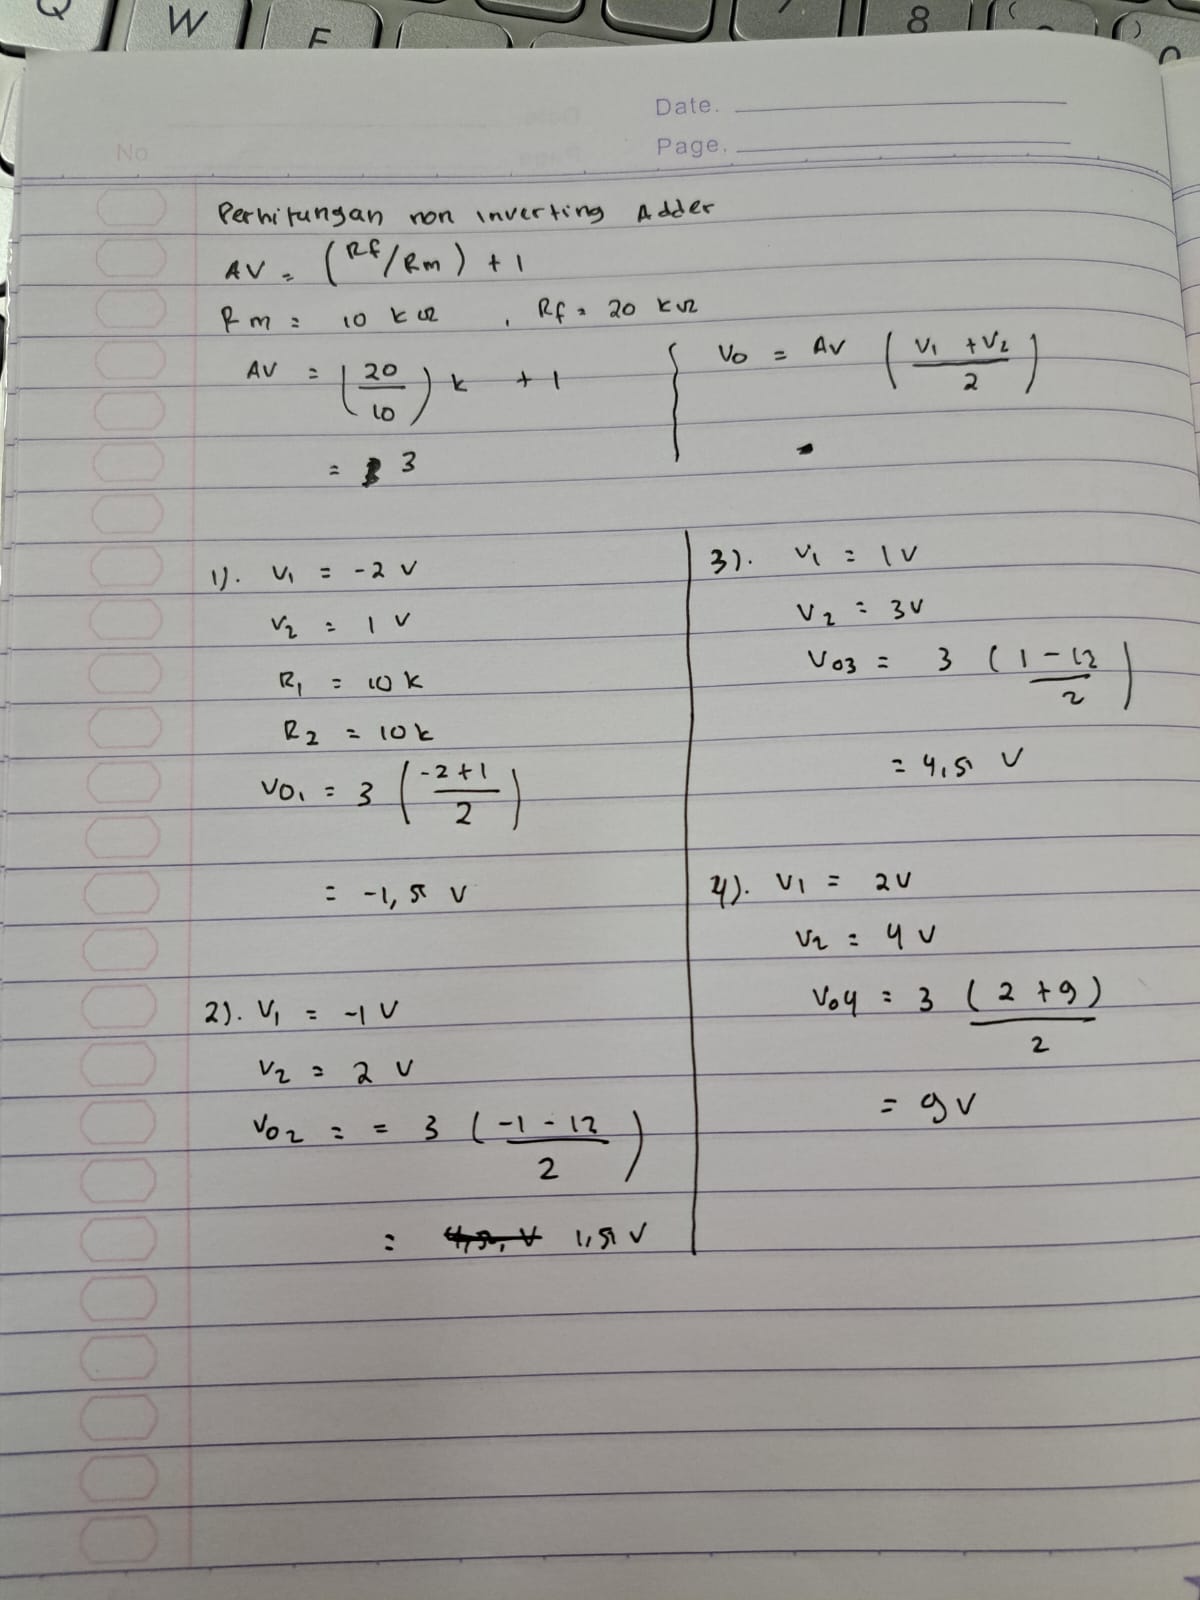 Q W E 8
Date.
Page.
No
Perhitungan non inverting Adder
AV = (Rf/Rm) + 1
Rm = 10 kΩ , Rf = 20 kΩ
AV = (20/10) k + 1
= 3
Vo = AV (V1 + V2 / 2)
1). V1 = -2 V
V2 = 1 V
R1 = 10 k
R2 = 10 k
Vo1 = 3 (-2+1 / 2)
= -1,5 V
2). V1 = -1 V
V2 = 2 V
Vo2 = = 3 (-1 - 12 / 2)
= 1,5 V
3). V1 = 1 V
V2 = 3 V
Vo3 = 3 (1 - 12 / 2)
= 4,5 V
4). V1 = 2 V
V2 = 4 V
Vo4 = 3 (2 + 9) / 2
= 9 V